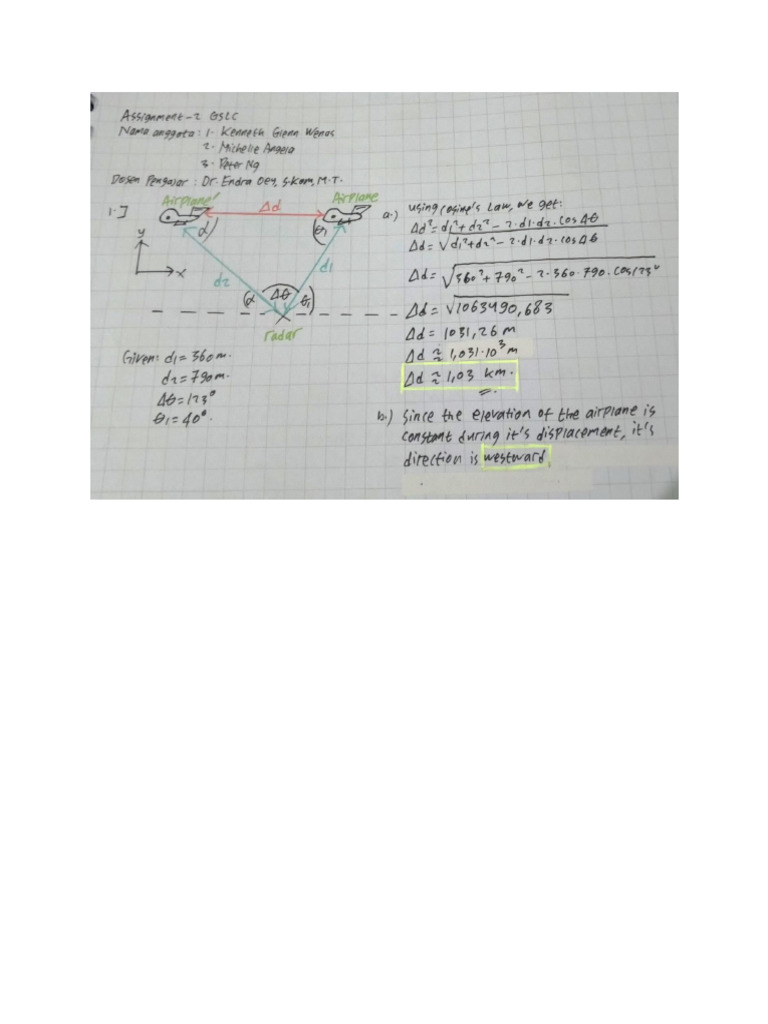 Assignment-2 GSLC
Nama anggota : 1. Kenneth Glenn Wenas
2. Michelle Angela
3. Peter Ng
Dosen Pengajar : Dr. Endra Oey, S.Kom, M.T.
1.]
Airplane'
Δd
Airplane
y
x
α
θ1
d2
d1
α
Δθ
θ1
radar
Given: d1 = 360 m.
d2 = 790 m.
Δθ = 123°
θ1 = 40°.
a.) using cosine's Law, we get:
Δd² = d1² + d2² - 2·d1·d2·cos Δθ
Δd = √d1² + d2² - 2·d1·d2·cos Δθ
Δd = √360² + 790² - 2·360·790·cos123°
Δd = √1063490,683
Δd = 1031,26 m
Δd ≈ 1,031·10³ m
Δd ≈ 1,03 km.
b.) Since the elevation of the airplane is
constant during it's displacement, it's
direction is westward